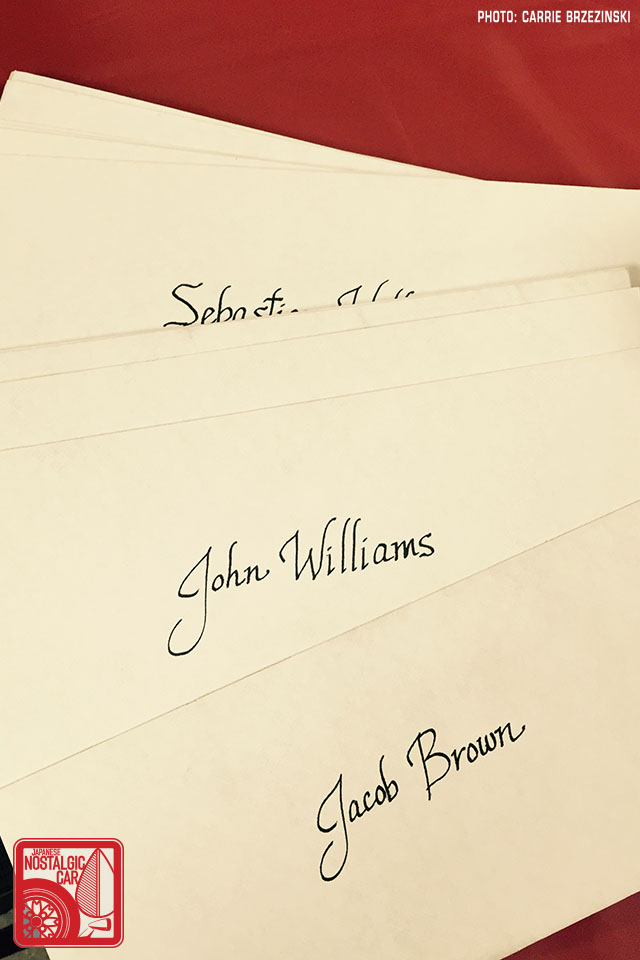 PHOTO: CARRIE BRZEZINSKI
John Williams
Jacob Brown
JAPANESE
NOSTALGIC
CAR